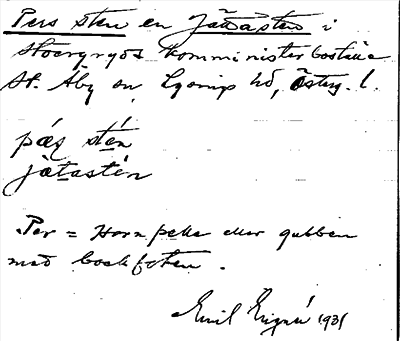 Pers sten en Jätasten i
Storgryds komministerboställe
St. Åby sn, Lysings hd, Österg. l.
pæṣ stén
jätastén
Per = Horn pelle eller gubben
med bockfoten.
Emil 1931